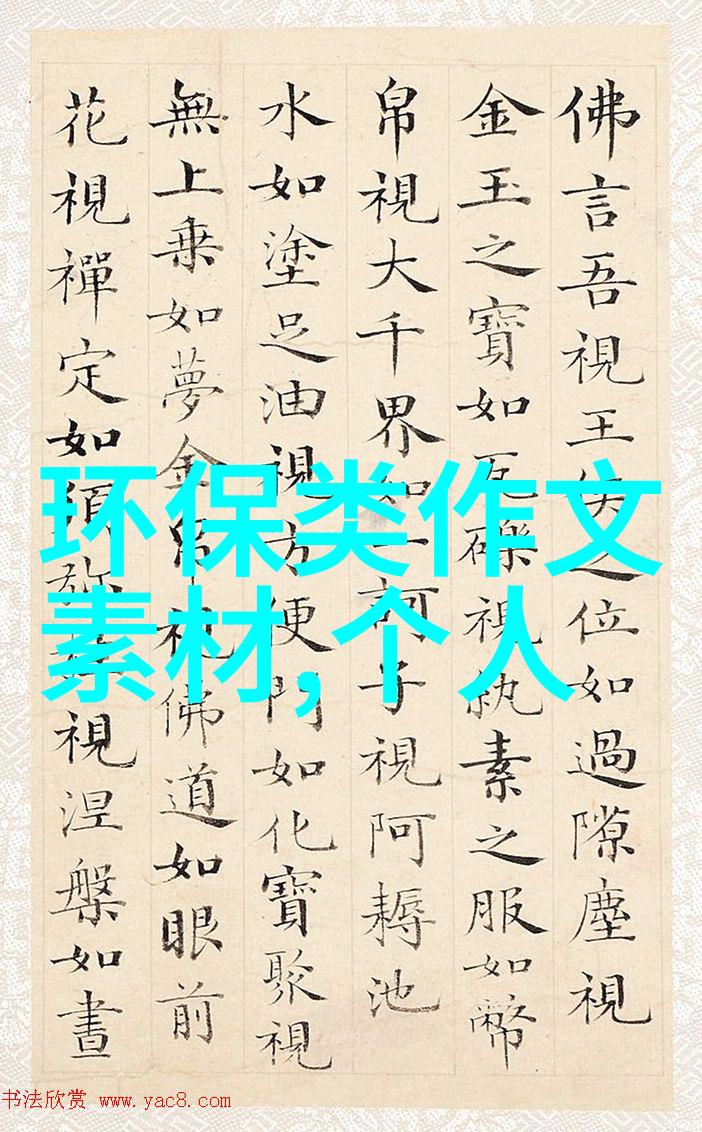 佛言吾視王侯之位如過隙塵視
金玉之寶如瓦礫視紈素之服如幣
帛視大千界如一訶子視阿耨池
水如塗足油視方便門如化寶聚視
無上乗如夢金帛視佛道如眼前
花視禪定如須弥柱視涅槃如晝
环保类作文
素材,个人
书法欣赏 www.yac8.com